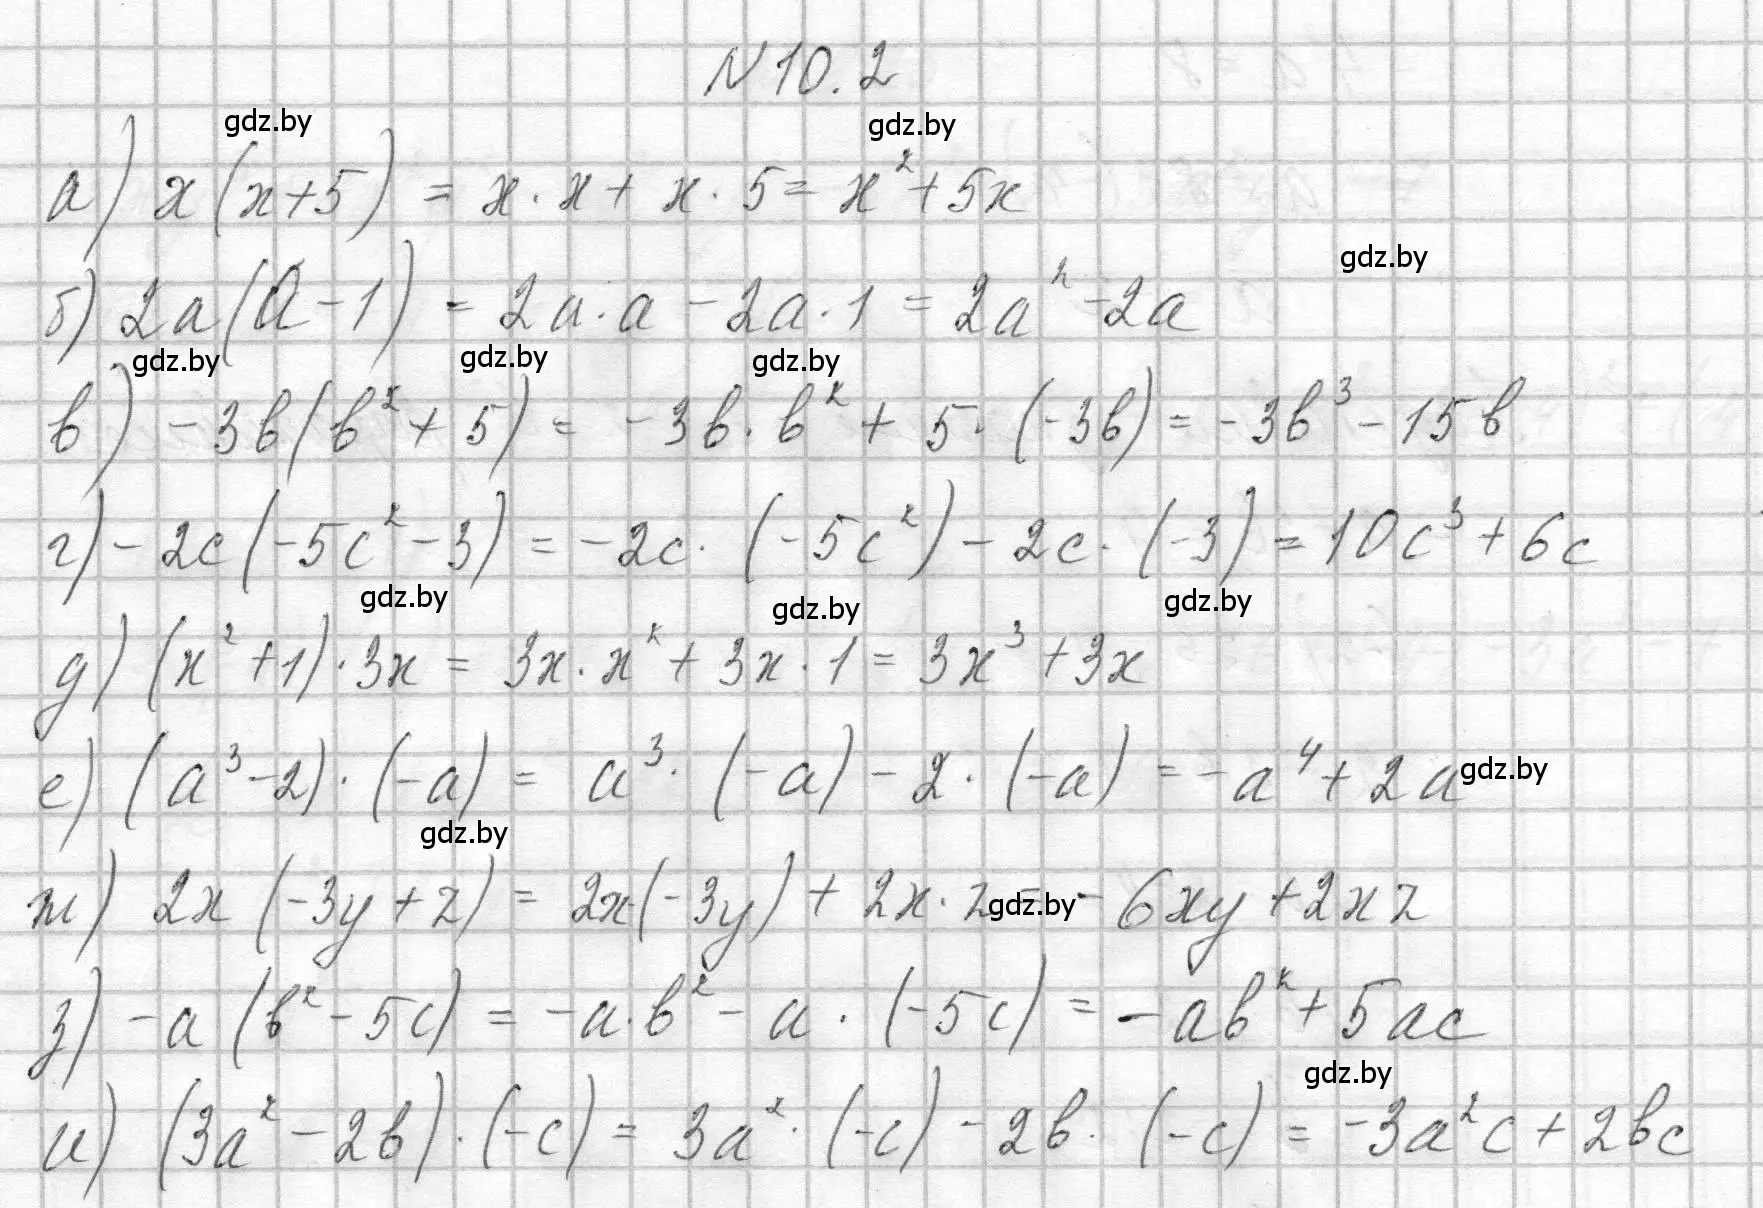 N 10.2
gdz.by
gdz.by
а) x(x+5) = x·x + x·5 = x²+5x
gdz.by
б) 2a(a-1) = 2a·a - 2a·1 = 2a²-2a
gdz.by gdz.by gdz.by
в) -3b(b²+5) = -3b·b² + 5·(-3b) = -3b³-15b
г) -2c(-5c²-3) = -2c·(-5c²) - 2c·(-3) = 10c³+6c
gdz.by gdz.by gdz.by
д) (x²+1)·3x = 3x·x² + 3x·1 = 3x³+3x
е) (a³-2)·(-a) = a³·(-a) - 2·(-a) = -a⁴+2a gdz.by
gdz.by
ж) 2x(-3y+z) = 2x·(-3y) + 2x·z = gdz.by -6xy+2xz
з) -a(b²-5c) = -a·b² - a·(-5c) = -ab²+5ac
gdz.by
и) (3a²-2b)·(-c) = 3a²·(-c) - 2b·(-c) = -3a²c+2bc